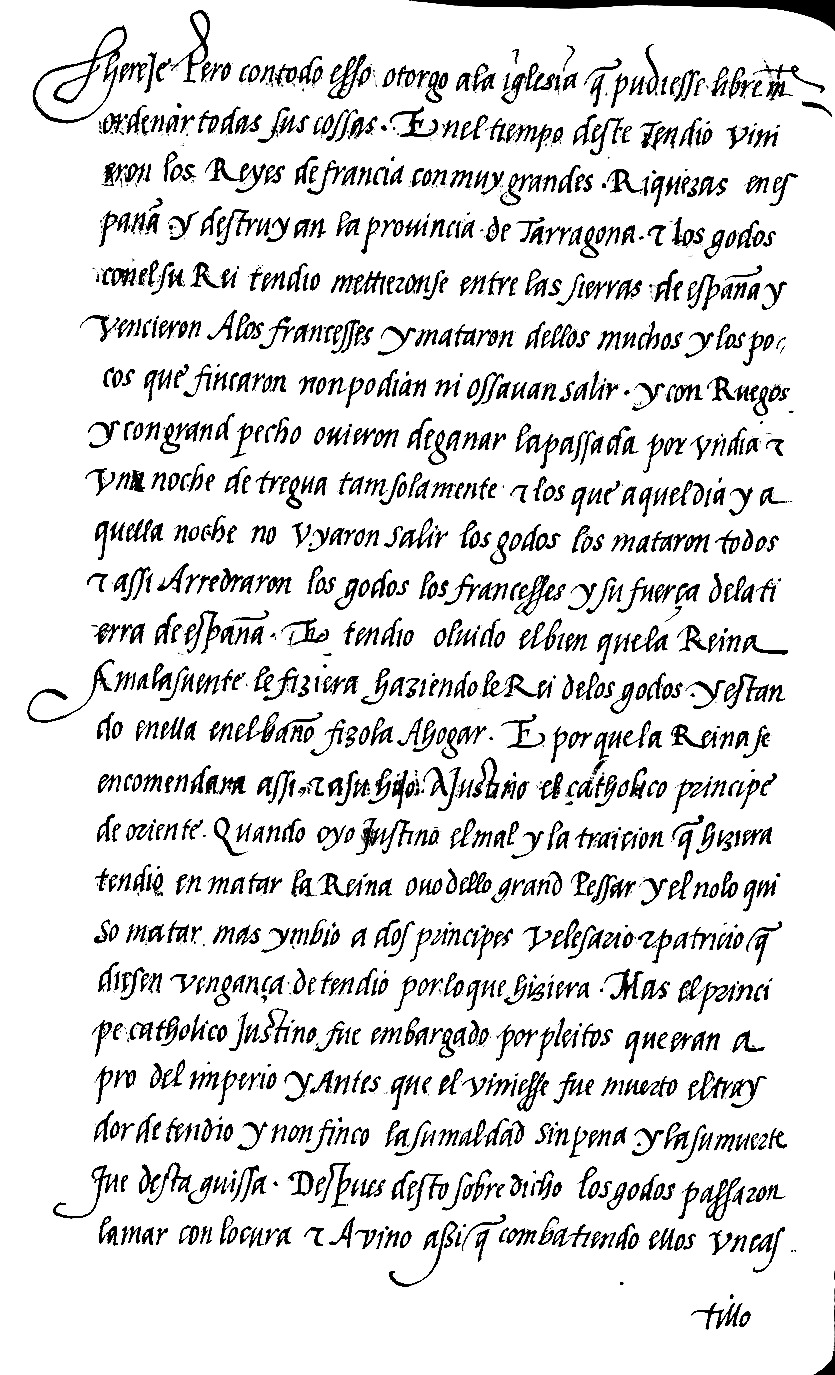 hereje Pero contodo esso otorgo ala iglesia q̃ pudiesse libre mte
ordenar todas sus cossas. E nel tiempo deste Tendio vini
eron los Reyes de francia con muy grandes. Riquezas en es
pañā y destruyan la provincia de Tarragona. τ los godos
conelsu Rei tendio mettieronse entre las sierras de españā y
Vencieron A los francesses y mataron dellos muchos y los po
cos que fincaron non podian ni ossavan salir. y con Ruegos
y con grand pecho ovieron de ganar la passada por vn dia τ
vna noche de tregua tam solamente τ los que aquel dia y a
quella noche no vyaron salir los godos los mataron todos
τ assi Arredraron los godos los francesses y su fuerça dela ti
erra de españā. E tendio oluido el bien que la Reina
Amalasuente le fiziera haziendole Rei delos godos. y estan
do enella enel baño fizola Ahogar. E porque la Reina se
encomendara assi τ a su hijo A Justino el catholico principe
de oriente. Quando oyo Justino el mal y la traicion q̃ hiziera
tendio en matar la Reina ouo dello grand Pessar y el nolo qui
so matar mas ymbio a dos principes velesario τ patricio q̃
diesen vengança de tendio por lo que hiziera. Mas el princi
pe catholico Justino fue embargado por pleitos que eran a
pro del imperio y Antes que el viniesse fue muerto el tray
dor de tendio y non finco la su maldad sin pena y la su muerte
fue desta guissa. Despues desto sobre dicho los godos passaron
la mar con locura τ Avino assi q̃ combatiendo ellos vn cas
tillo